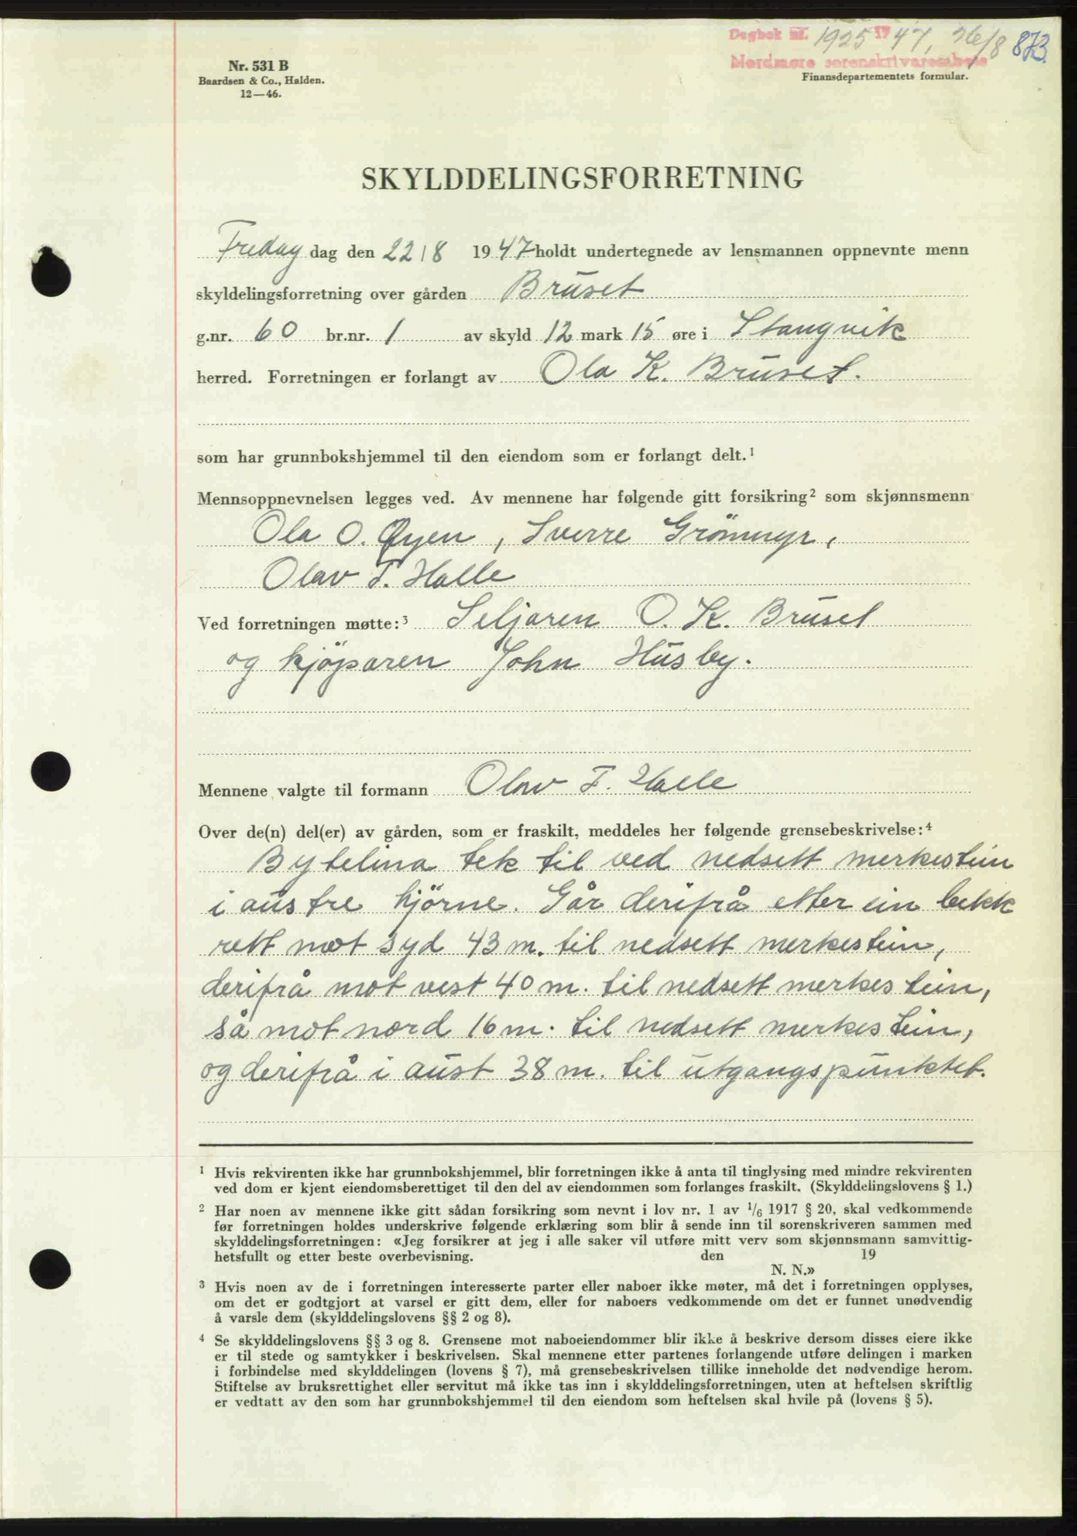 Dagbok nr. 1925 1947, 26/8 873
Nordmøre sorenskriverembete
Nr. 531 B
Baardsen & Co., Halden.
12—46.
Finansdepartementets formular.
SKYLDDELINGSFORRETNING
Fredag dag den 22/8 1947 holdt undertegnede av lensmannen oppnevnte menn
skyldelingsforretning over gården Bruset
g.nr. 60 br.nr. 1 av skyld 12 mark 15 øre i Stangvik
herred. Forretningen er forlangt av Ola K. Bruset.
som har grunnbokshjemmel til den eiendom som er forlangt delt.¹
Mennsoppnevnelsen legges ved. Av mennene har følgende gitt forsikring² som skjønnsmenn
Ola O. Øyen, Sverre Grönmyr,
Olav T. Halle
Ved forretningen møtte:³ Seljaren O. K. Bruset
og kjöparen John Husby.
Mennene valgte til formann Olav T. Halle
Over de(n) del(er) av gården, som er fraskilt, meddeles her følgende grensebeskrivelse:⁴
Bytelina tek til ved nedsett merkestein
i austre hjörne. Går derifrå etter ein bekk
rett mot syd 43 m. til nedsett merkestein,
derifrå mot vest 40 m. til nedsett merkestein,
så mot nord 16 m. til nedsett merkestein,
og derifrå i aust 38 m. til utgangspunktet.
¹ Hvis rekvirenten ikke har grunnbokshjemmel, blir forretningen ikke å anta til tinglysing med mindre rekvirenten
ved dom er kjent eiendomsberettiget til den del av eiendommen som forlanges fraskilt. (Skylddelingslovens § 1.)
² Har noen av mennene ikke gitt sådan forsikring som nevnt i lov nr. 1 av 1/6 1917 § 20, skal vedkommende
før forretningen holdes underskrive følgende erklæring som blir å sende inn til sorenskriveren sammen med
skylddelingsforretningen: «Jeg forsikrer at jeg i alle saker vil utføre mitt verv som skjønnsmann samvittig-
hetsfullt og etter beste overbevisning. den 19
N. N.»
³ Hvis noen av de i forretningen interesserte parter eller naboer ikke møter, må det i forretningen opplyses,
om det er godtgjort at varsel er gitt dem, eller for naboers vedkommende om det er funnet unødvendig
å varsle dem (skylddelingslovens §§ 2 og 8).
⁴ Se skylddelingslovens §§ 3 og 8. Grensene mot naboeiendommer blir ikke å beskrive dersom disses eiere ikke
er til stede og samtykker i beskrivelsen. Skal mennene etter partenes forlangende utføre delingen i marken
i forbindelse med skylddelingen (lovens § 7), må grensebeskrivelsen tillike inneholde det nødvendige herom.
Stiftelse av bruksrettighet eller servitut må ikke tas inn i skylddelingsforretningen, uten at heftelsen skriftlig
er vedtatt av den som har grunnbokshjemmel til den eiendom som heftelsen skal hvile på (lovens § 5).